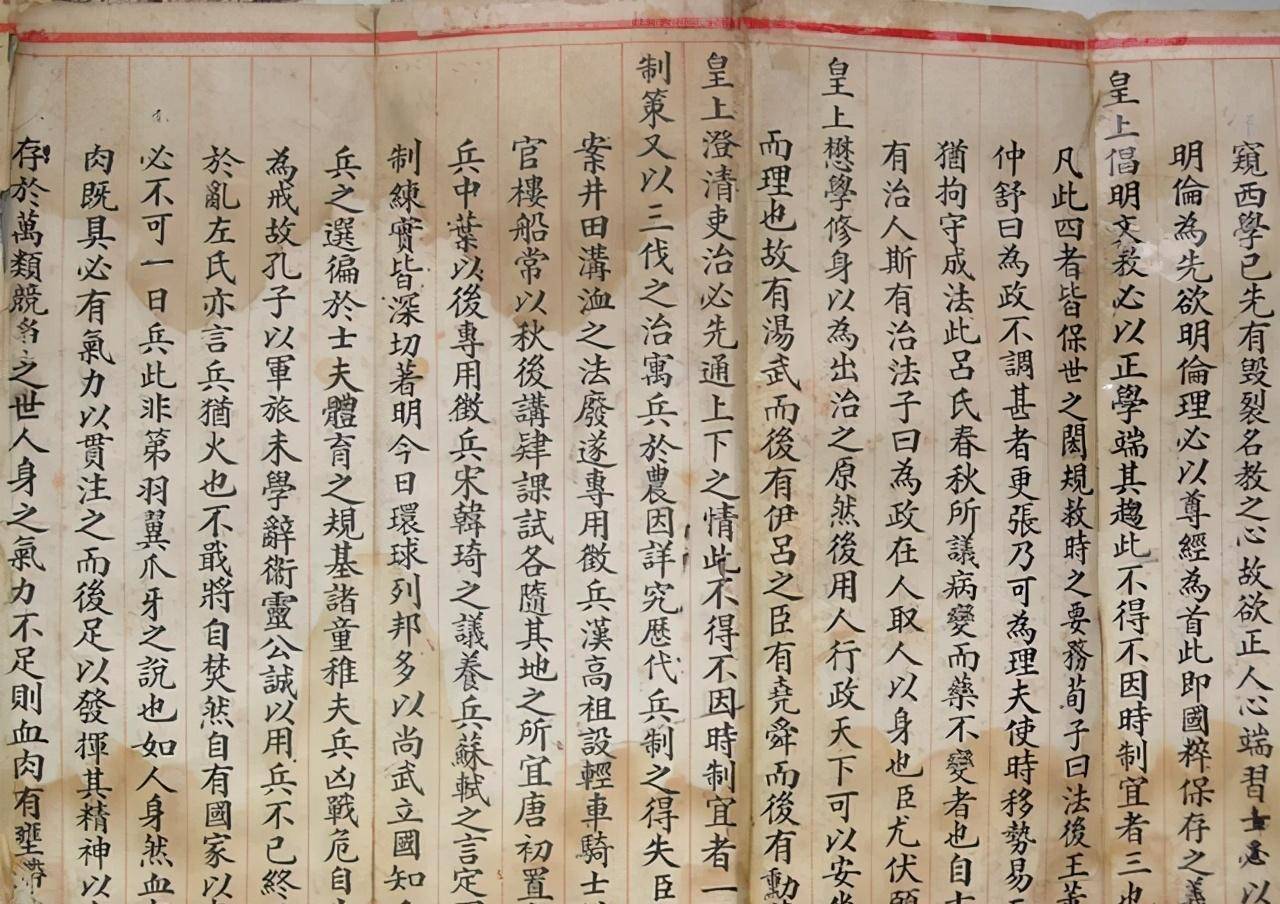 窺西學已先有毀裂名教之心故欲正人心端習士以
明倫為先欲明倫理必以尊經為首此即國粹保存之義
皇上倡明文教必以正學端其趨此不得不因時制宜者三也
凡此四者皆保世之閎規救時之要務荀子曰法後王董
仲舒曰為政不調甚者更張乃可為理夫使時移勢易
猶拘守成法此呂氏春秋所議病變而藥不變者也自
有治人斯有治法子曰為政在人取人以身也臣尤伏願
皇上懋學修身以為出治之原然後用人行政天下可以安
而理也故有湯武而後有伊呂之臣有堯舜而後有勳
皇上澄清吏治必先通上下之情此不得不因時制宜者一
制策又以三代之治寓兵於農因詳究歷代兵制之得失臣
案井田溝洫之法廢遂專用徵兵漢高祖設輕車騎士
官樓船常以秋後講肆課試各隨其地之所宜唐初置
兵中葉以後專用徵兵宋韓琦之議養兵蘇軾之言定
制練實皆深切著明今日環球列邦多以尚武立國知
兵之選徧於士夫體育之規基諸童稚夫兵凶戰危自
為戒故孔子以軍旅未學辭衛靈公誠以用兵不已終
於亂左氏亦言兵猶火也不戢將自焚然自有國家以
必不可一日兵此非第羽翼爪牙之說也如人身然血
肉既具必有氣力以貫注之而後足以發揮其精神以
存於萬類競爭之世人身之氣力不足則血肉有壅滯